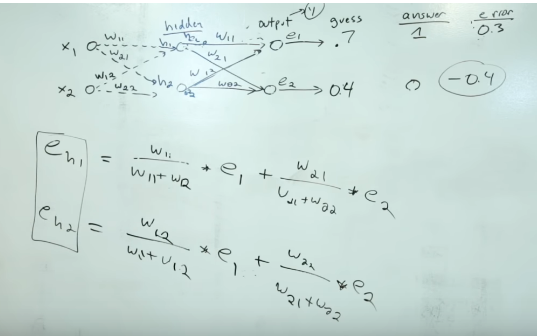 hidden output (y) guess answer error
x₁ w₁₁ w₂₁ h₁ w₁₁ w₂₁ e₁ .7 1 0.3
x₂ w₁₃ w₂₂ h₂ w₁₂ w₂₂ e₂ 0.4 0 -0.4
e_h₁ = w₁₁ / (w₁₁ + w₁₂) * e₁ + w₂₁ / (w₂₁ + w₂₂) * e₂
e_h₂ = w₁₂ / (w₁₁ + w₁₂) * e₁ + w₂₂ / (w₂₁ + w₂₂) * e₂